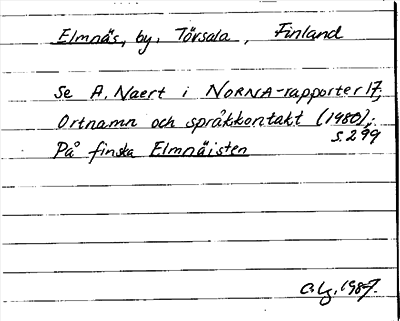 Elmnäs, by, Törsala, Finland
Se A. Naert i NORNA-rapporter 17,
Ortnamn och språkkontakt (1980),
s. 299
På finska Elmnäisten
1987.